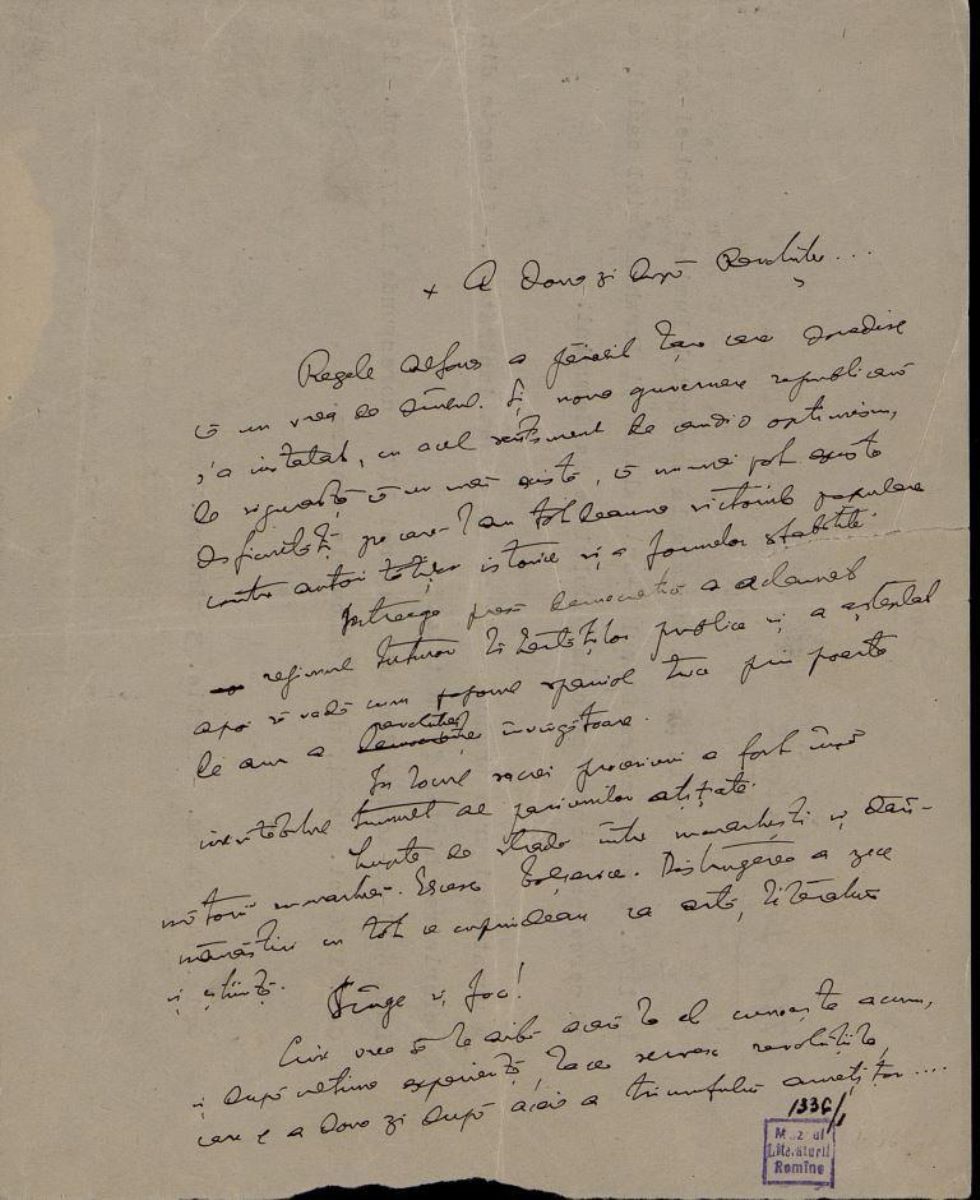 × A doua zi după Revoluție...
Regele Alfons a părăsit țara care dovedise
că nu vrea de dânsul. Și noua guvernare republicană
s'a instalat, cu acel sentiment de candid optimism,
de siguranță că nu mai există, că nu mai pot exista
dificultăți pe care l au totdeauna victoriile populare
contra autorităților istorice și a formelor stabilite.
Intreaga presă democratică a aclamat
regimul tuturor libertăților publice și a așteptat
apoi să vadă cum poporul spaniol trece prin poarta
de aur a revoluției învingătoare.
In locul sacrei procesiuni a fost însă
inevitabilul tumult al pasiunilor ațițate.
Lupte de stradă între monarhiști și dărâ-
mătorii monarhiei. Excese bolșevice. Distrugerea a zece
mănăstiri cu tot ce cuprindeau ca artă, literatură
și știință.
Sânge și foc!
Cine vrea să le aibă acasă la el cunoaște acum,
și după ultima experiență, la ce servesc revoluțiile,
care e a doua zi după aceia a triumfului amețitor....
1336/1
Muzeul
Literaturii
Romîne